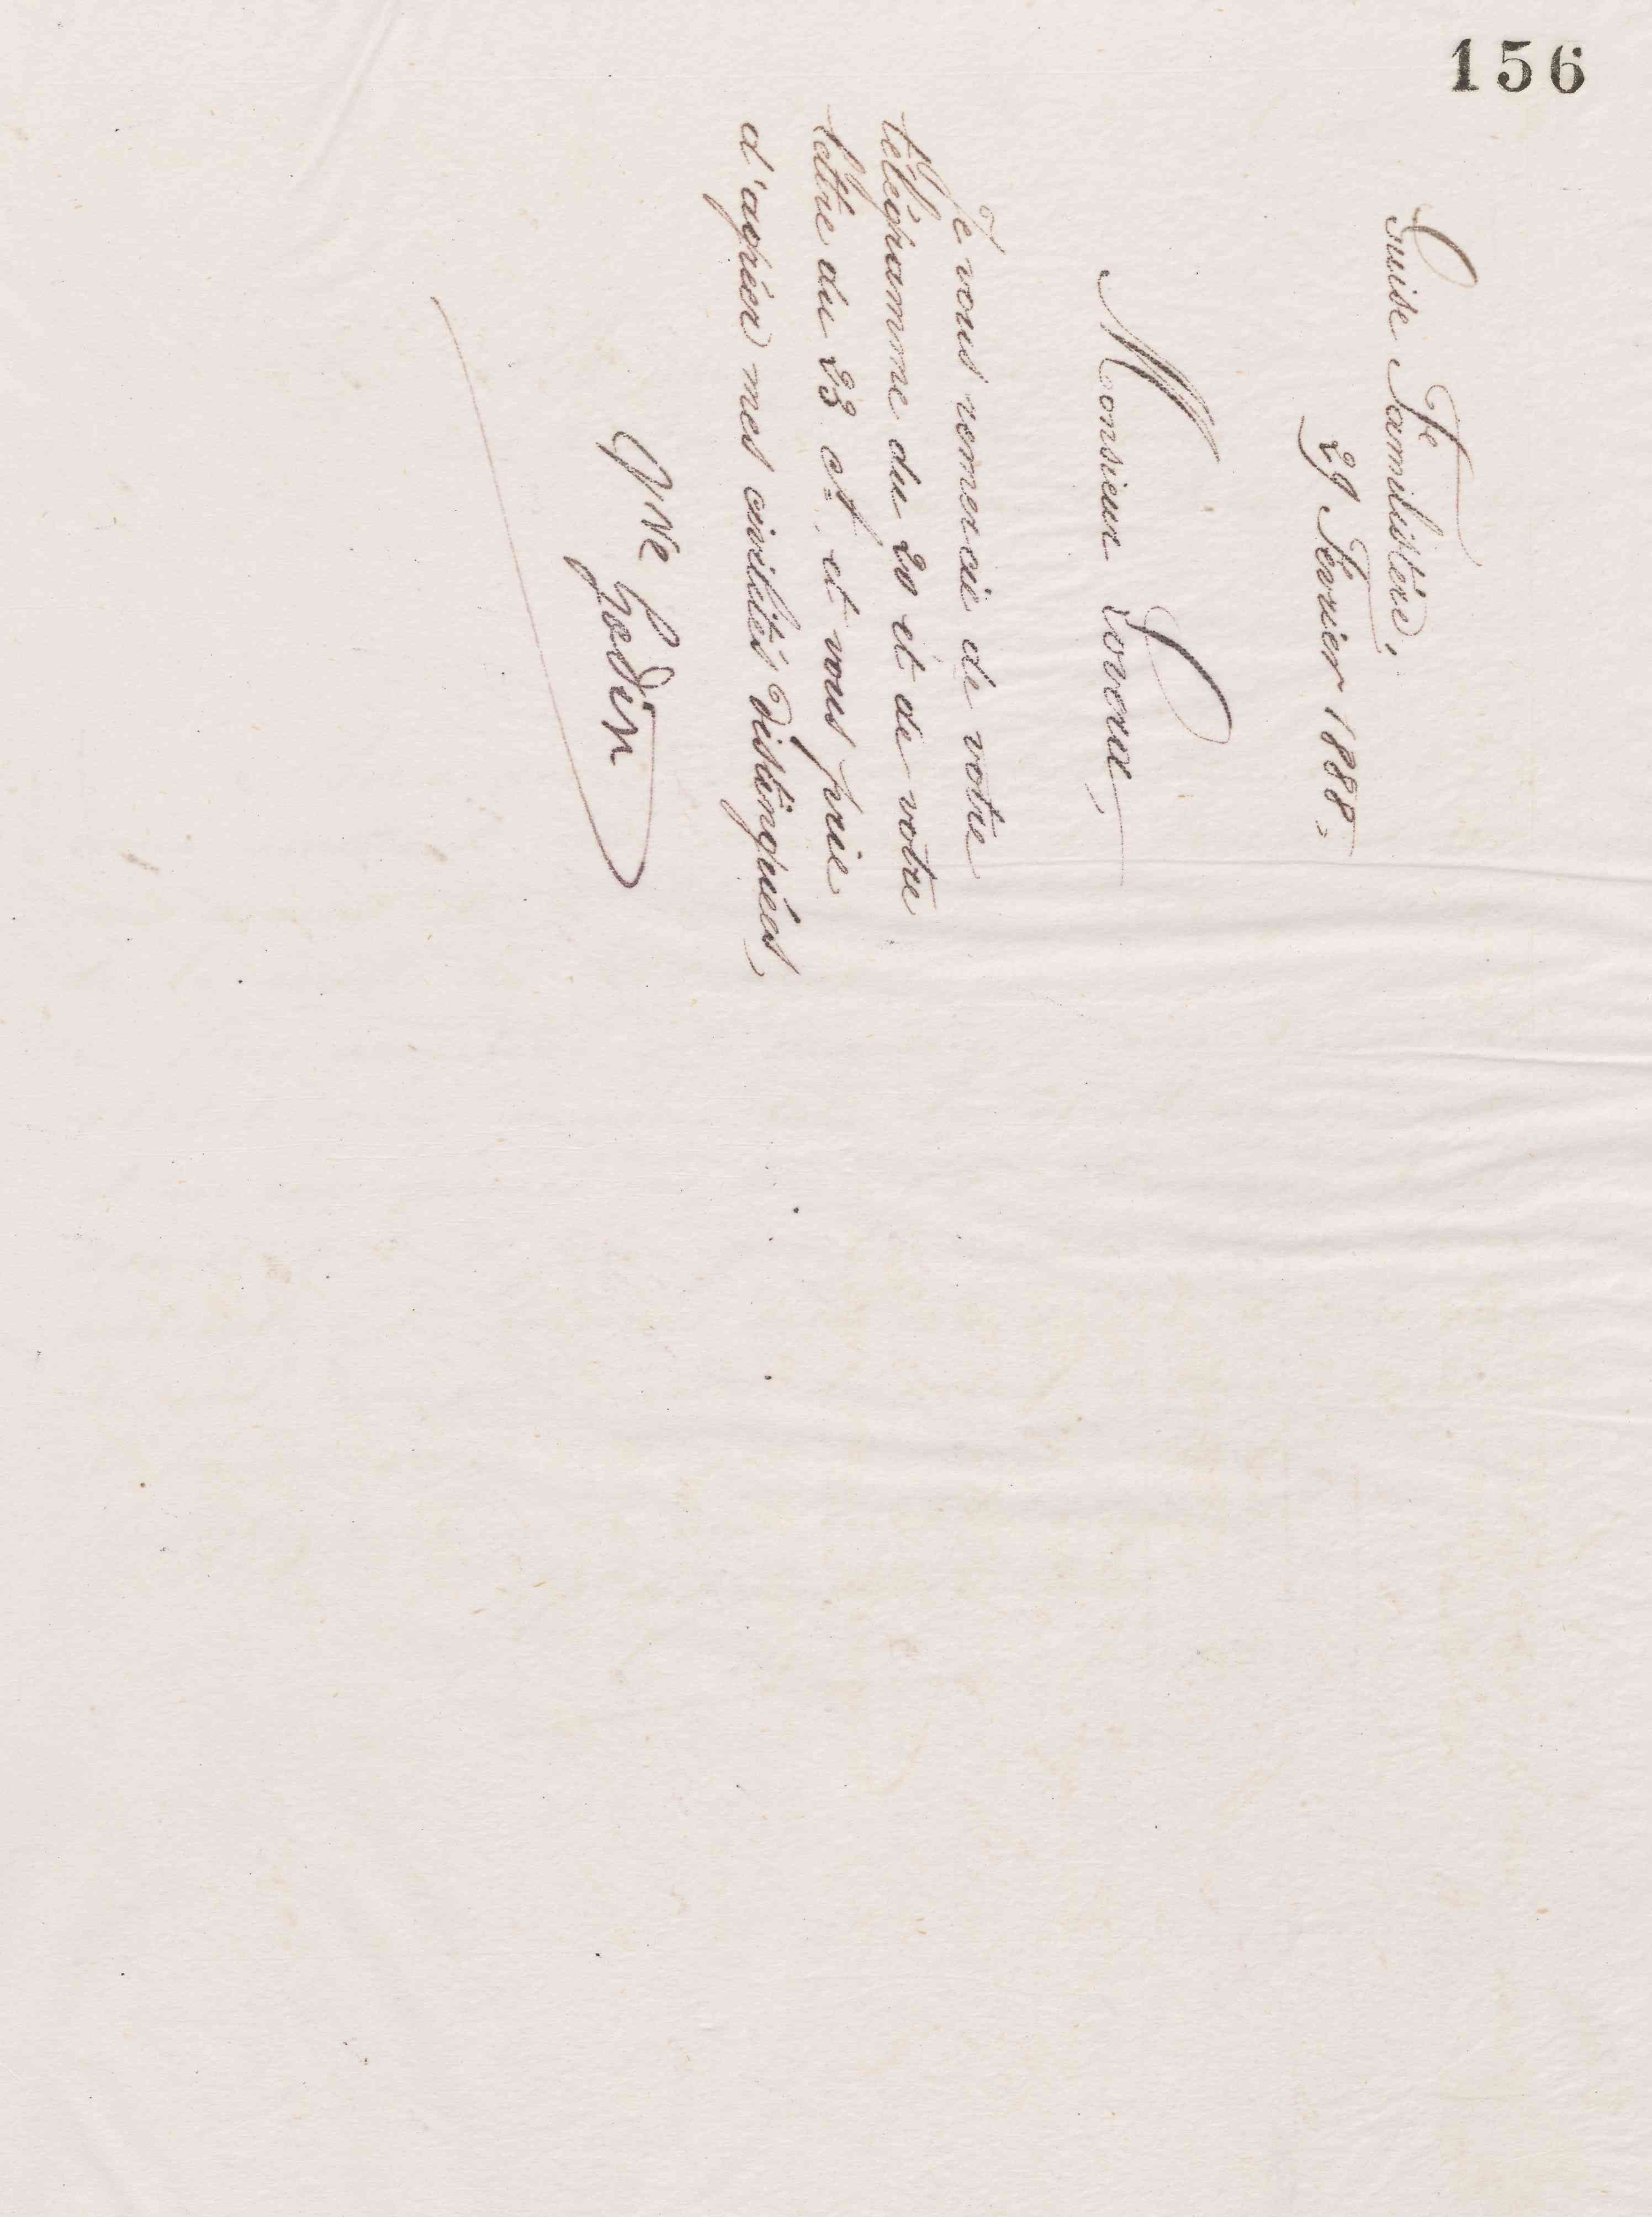 156
Guise Familistère,
29 Février 1888.
Monsieur
Je vous remercie de votre
télégramme du 20 et de votre
lettre du 23 ct. et vous prie
d'agréer mes civilités distinguées,
Vve Godin